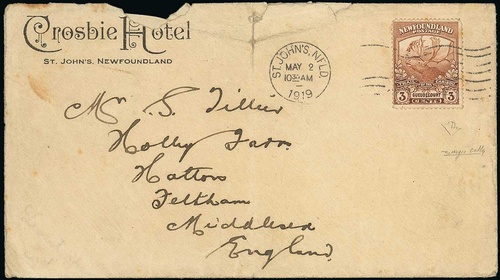 Crosbie Hotel
St. John's, Newfoundland
ST. JOHN'S, NFLD.
MAY 2
10 30 AM
1919
NEWFOUNDLAND
POSTAGE
3 GUEUDECOURT 3
CENTS
Mr S. Tillier
Holly Farm
Hatton
Feltham
Middlesex
England